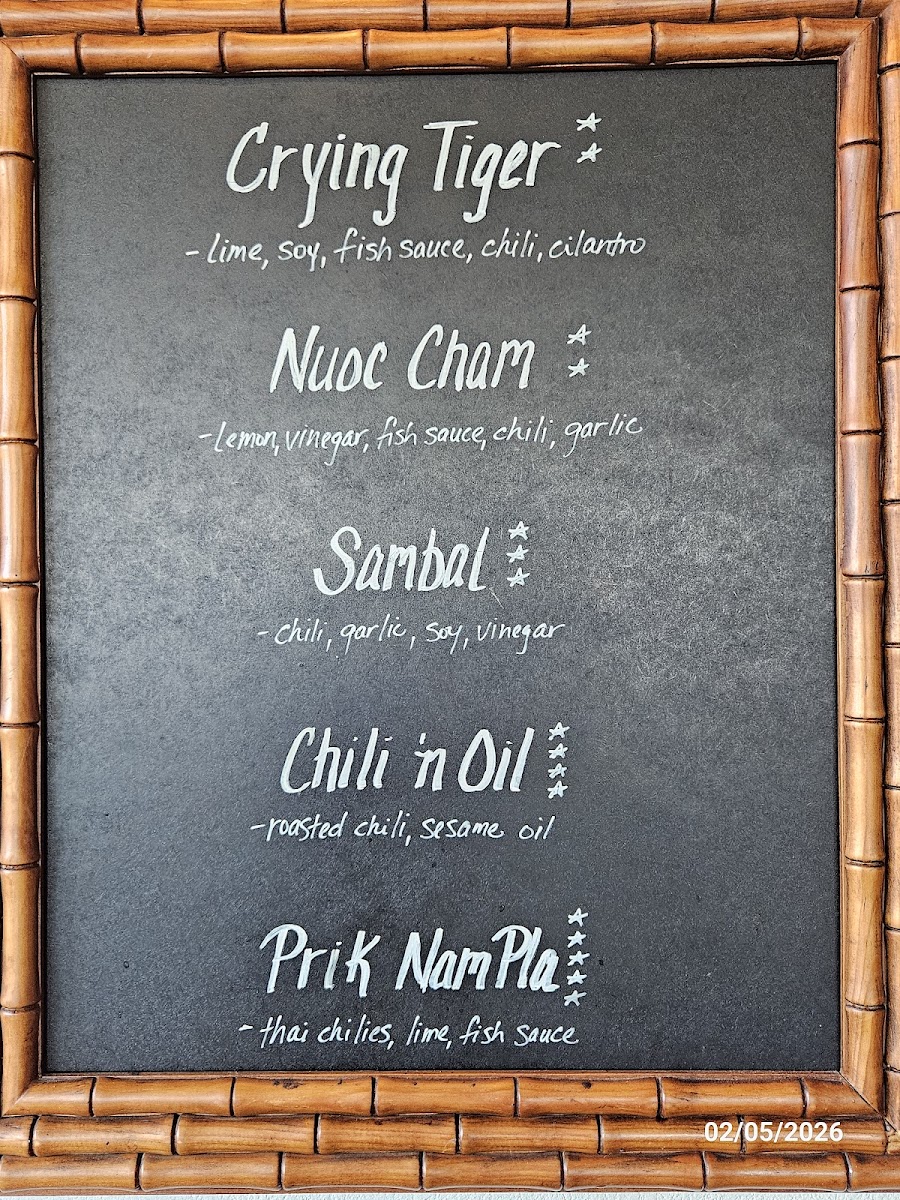 Crying Tiger ☆☆
- lime, soy, fish sauce, chili, cilantro
Nuoc Cham ☆☆
- Lemon, vinegar, fish sauce, chili, garlic
Sambal ☆☆☆
- chili, garlic, soy, vinegar
Chili 'n Oil ☆☆☆☆
- roasted chili, sesame oil
Prik Nam Pla ☆☆☆☆☆
- thai chilies, lime, fish sauce
02/05/2026